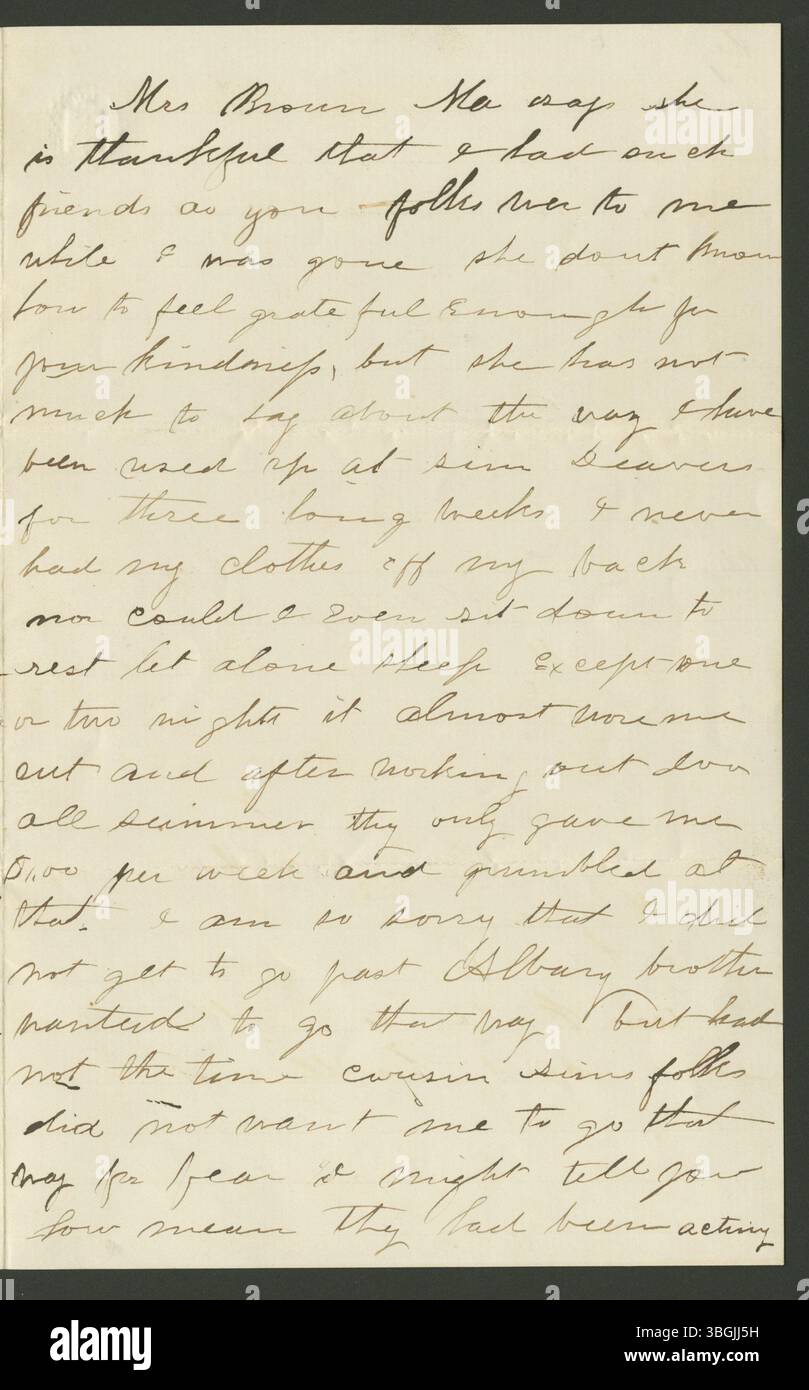 Mrs Brown Ma says she
is thankful that I had such
friends as you folks wer to me
while I was gone she dont know
how to feel grateful Enough for
your kindness, but she has not
much to say about the way I have
been used up at sim Deavers
for three long weeks I never
had my clothes off my back
nor could I Even sit down to
rest let alone sleep Except one
or two nights it almost wore me
out and after working out doo
all summer they only gave me
per week and grumbled at
that. I am so sorry that I did
not get to go past Albany brother
wanted to go that way but had
not the time cousin sims folks
did not want me to go that
way for fear I might tell you
how mean they had been acting
alamy
Image ID: 3BGJJ5H
www.alamy.com